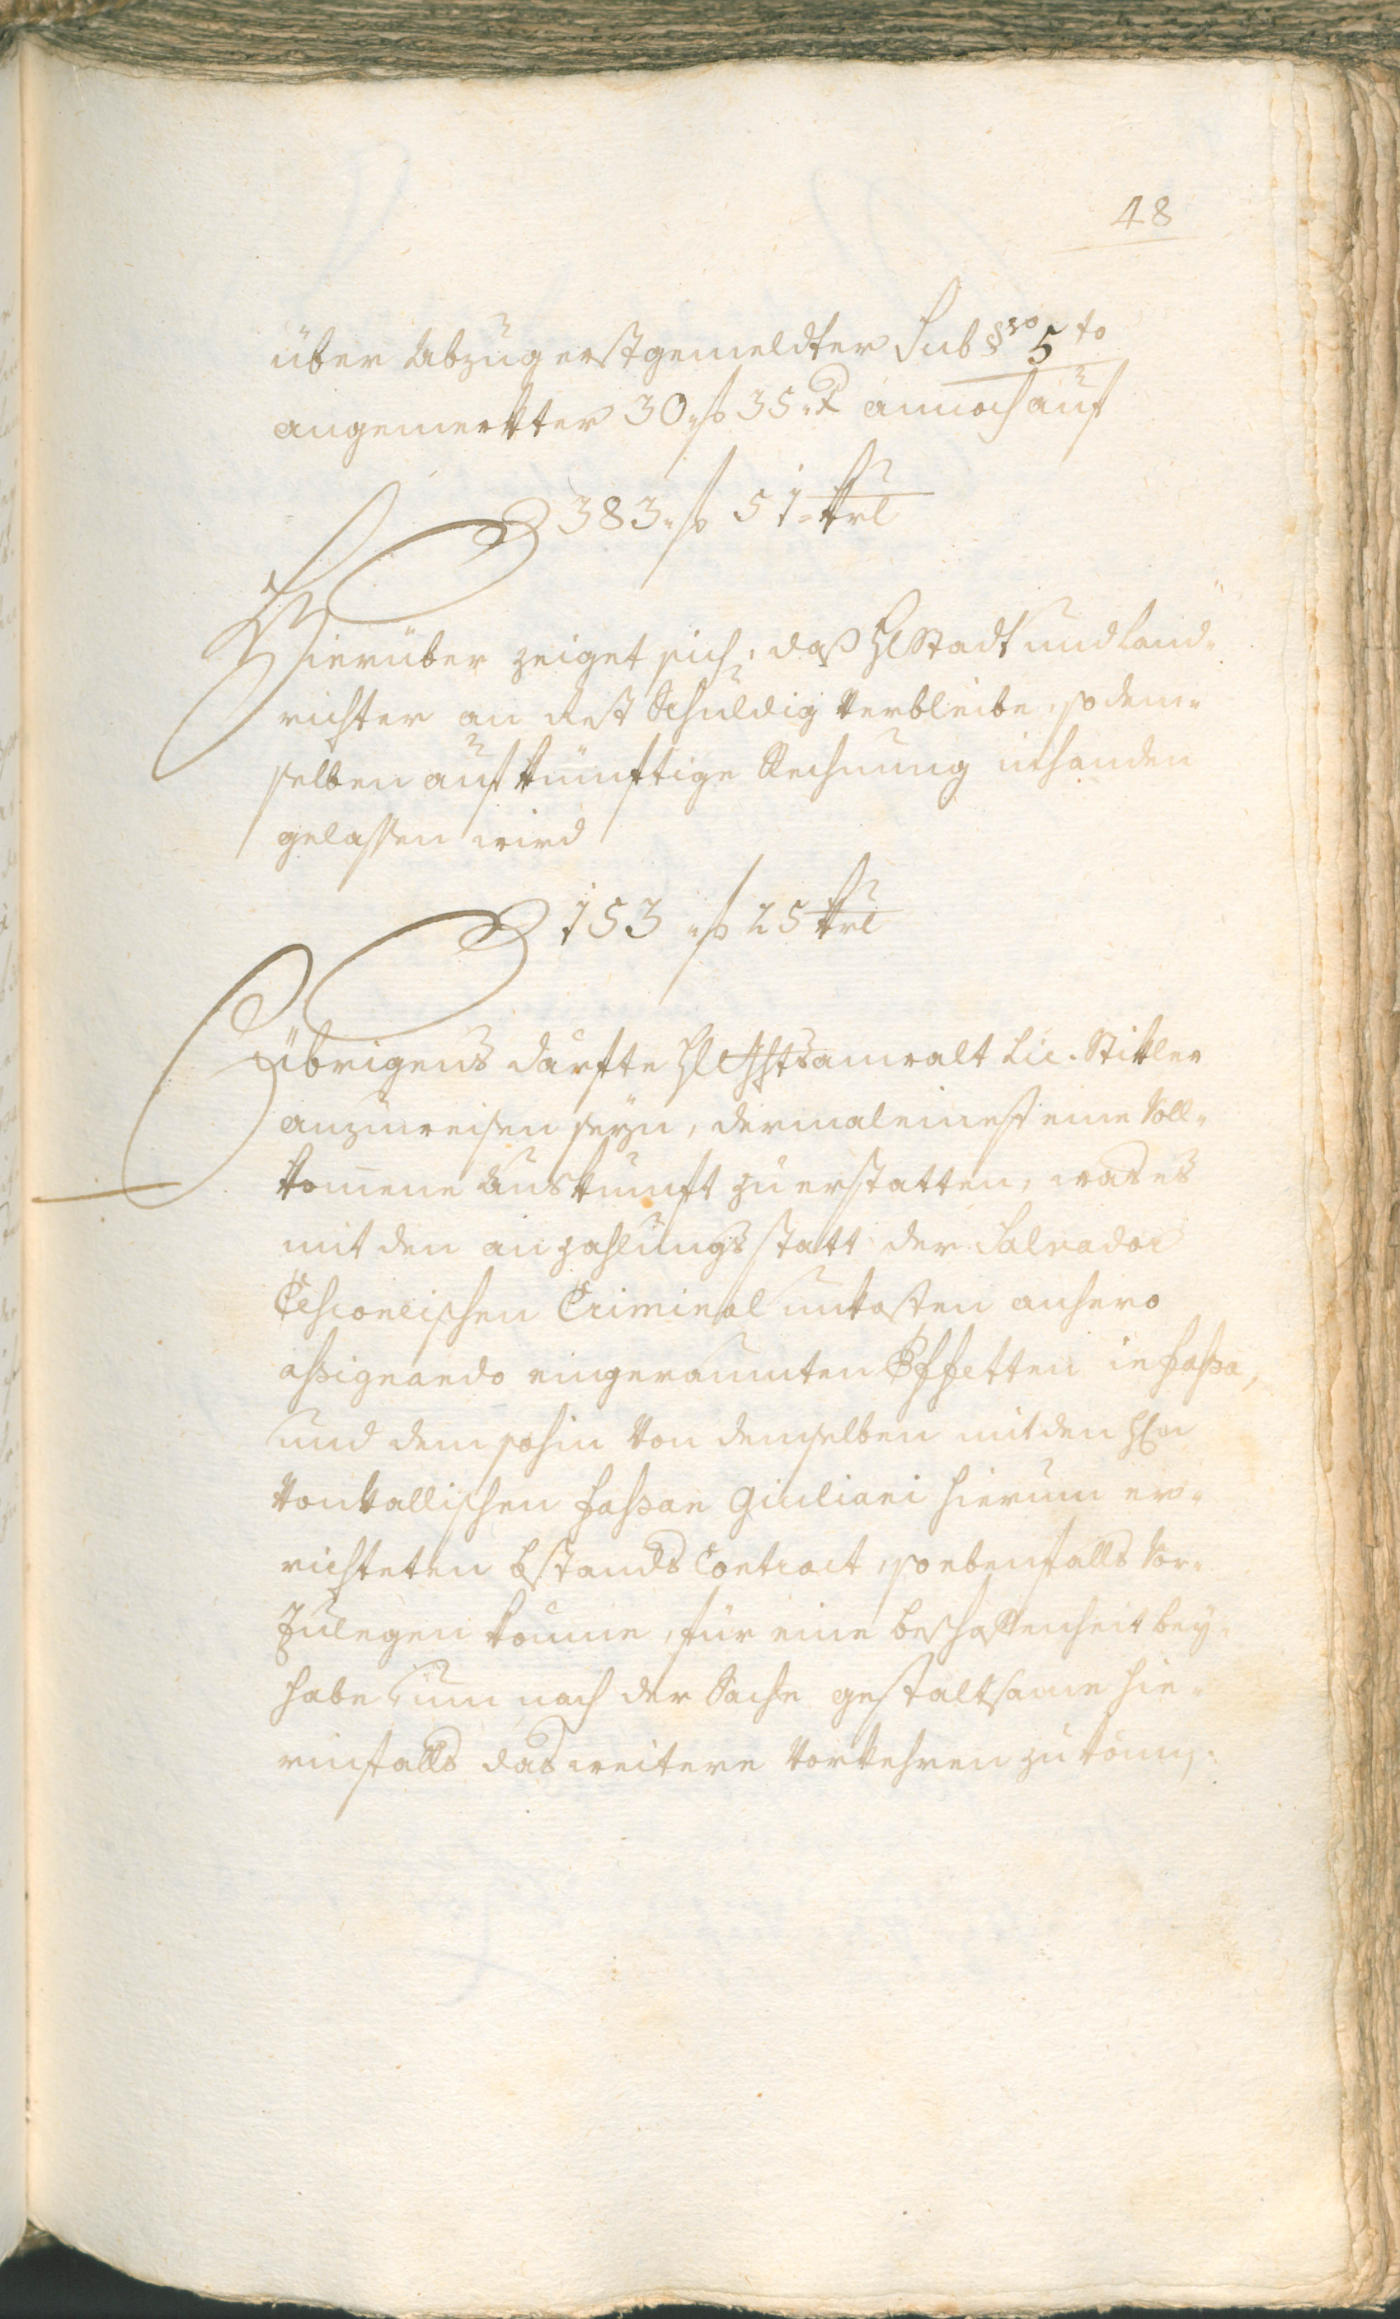 48
über Abzug erstgemeldter Sub §vo 5to
angemerkter 30 f 35 x annoch auf
383 f 51 krl
Hierüber zeiget sich, daß H Stadt und Land¬
richter an Rest schuldig verbleibe, so dem¬
selben auf künftige Rechnung inhanden
gelassen wird
153 f 25 krl
übrigens dürfte H Ghtsanwalt Lic. Stitler
anzuweisen seyn, dermaleinest eine Voll¬
komene Auskunft zu erstatten, was es
mit den an zahlungs statt der Salvador
Criminal unkosten anhero
assignando eingeraumten Effetten in Faßa,
und dem sohin von demselben mit den H
Faßan Giuliani hierum er¬
richteten bstands Contract, so ebenfalls vor¬
zulegen komme, für eine beschaffenheit bey¬
habe, um nach der Sache gestaltsame hie¬
rinfalls das weitere vorkehren zu könn: